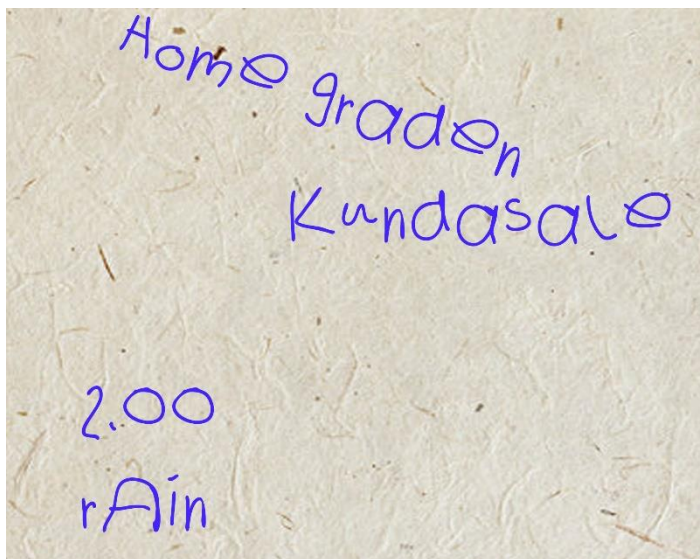 Home graden
Kundasale
2.00
rAin